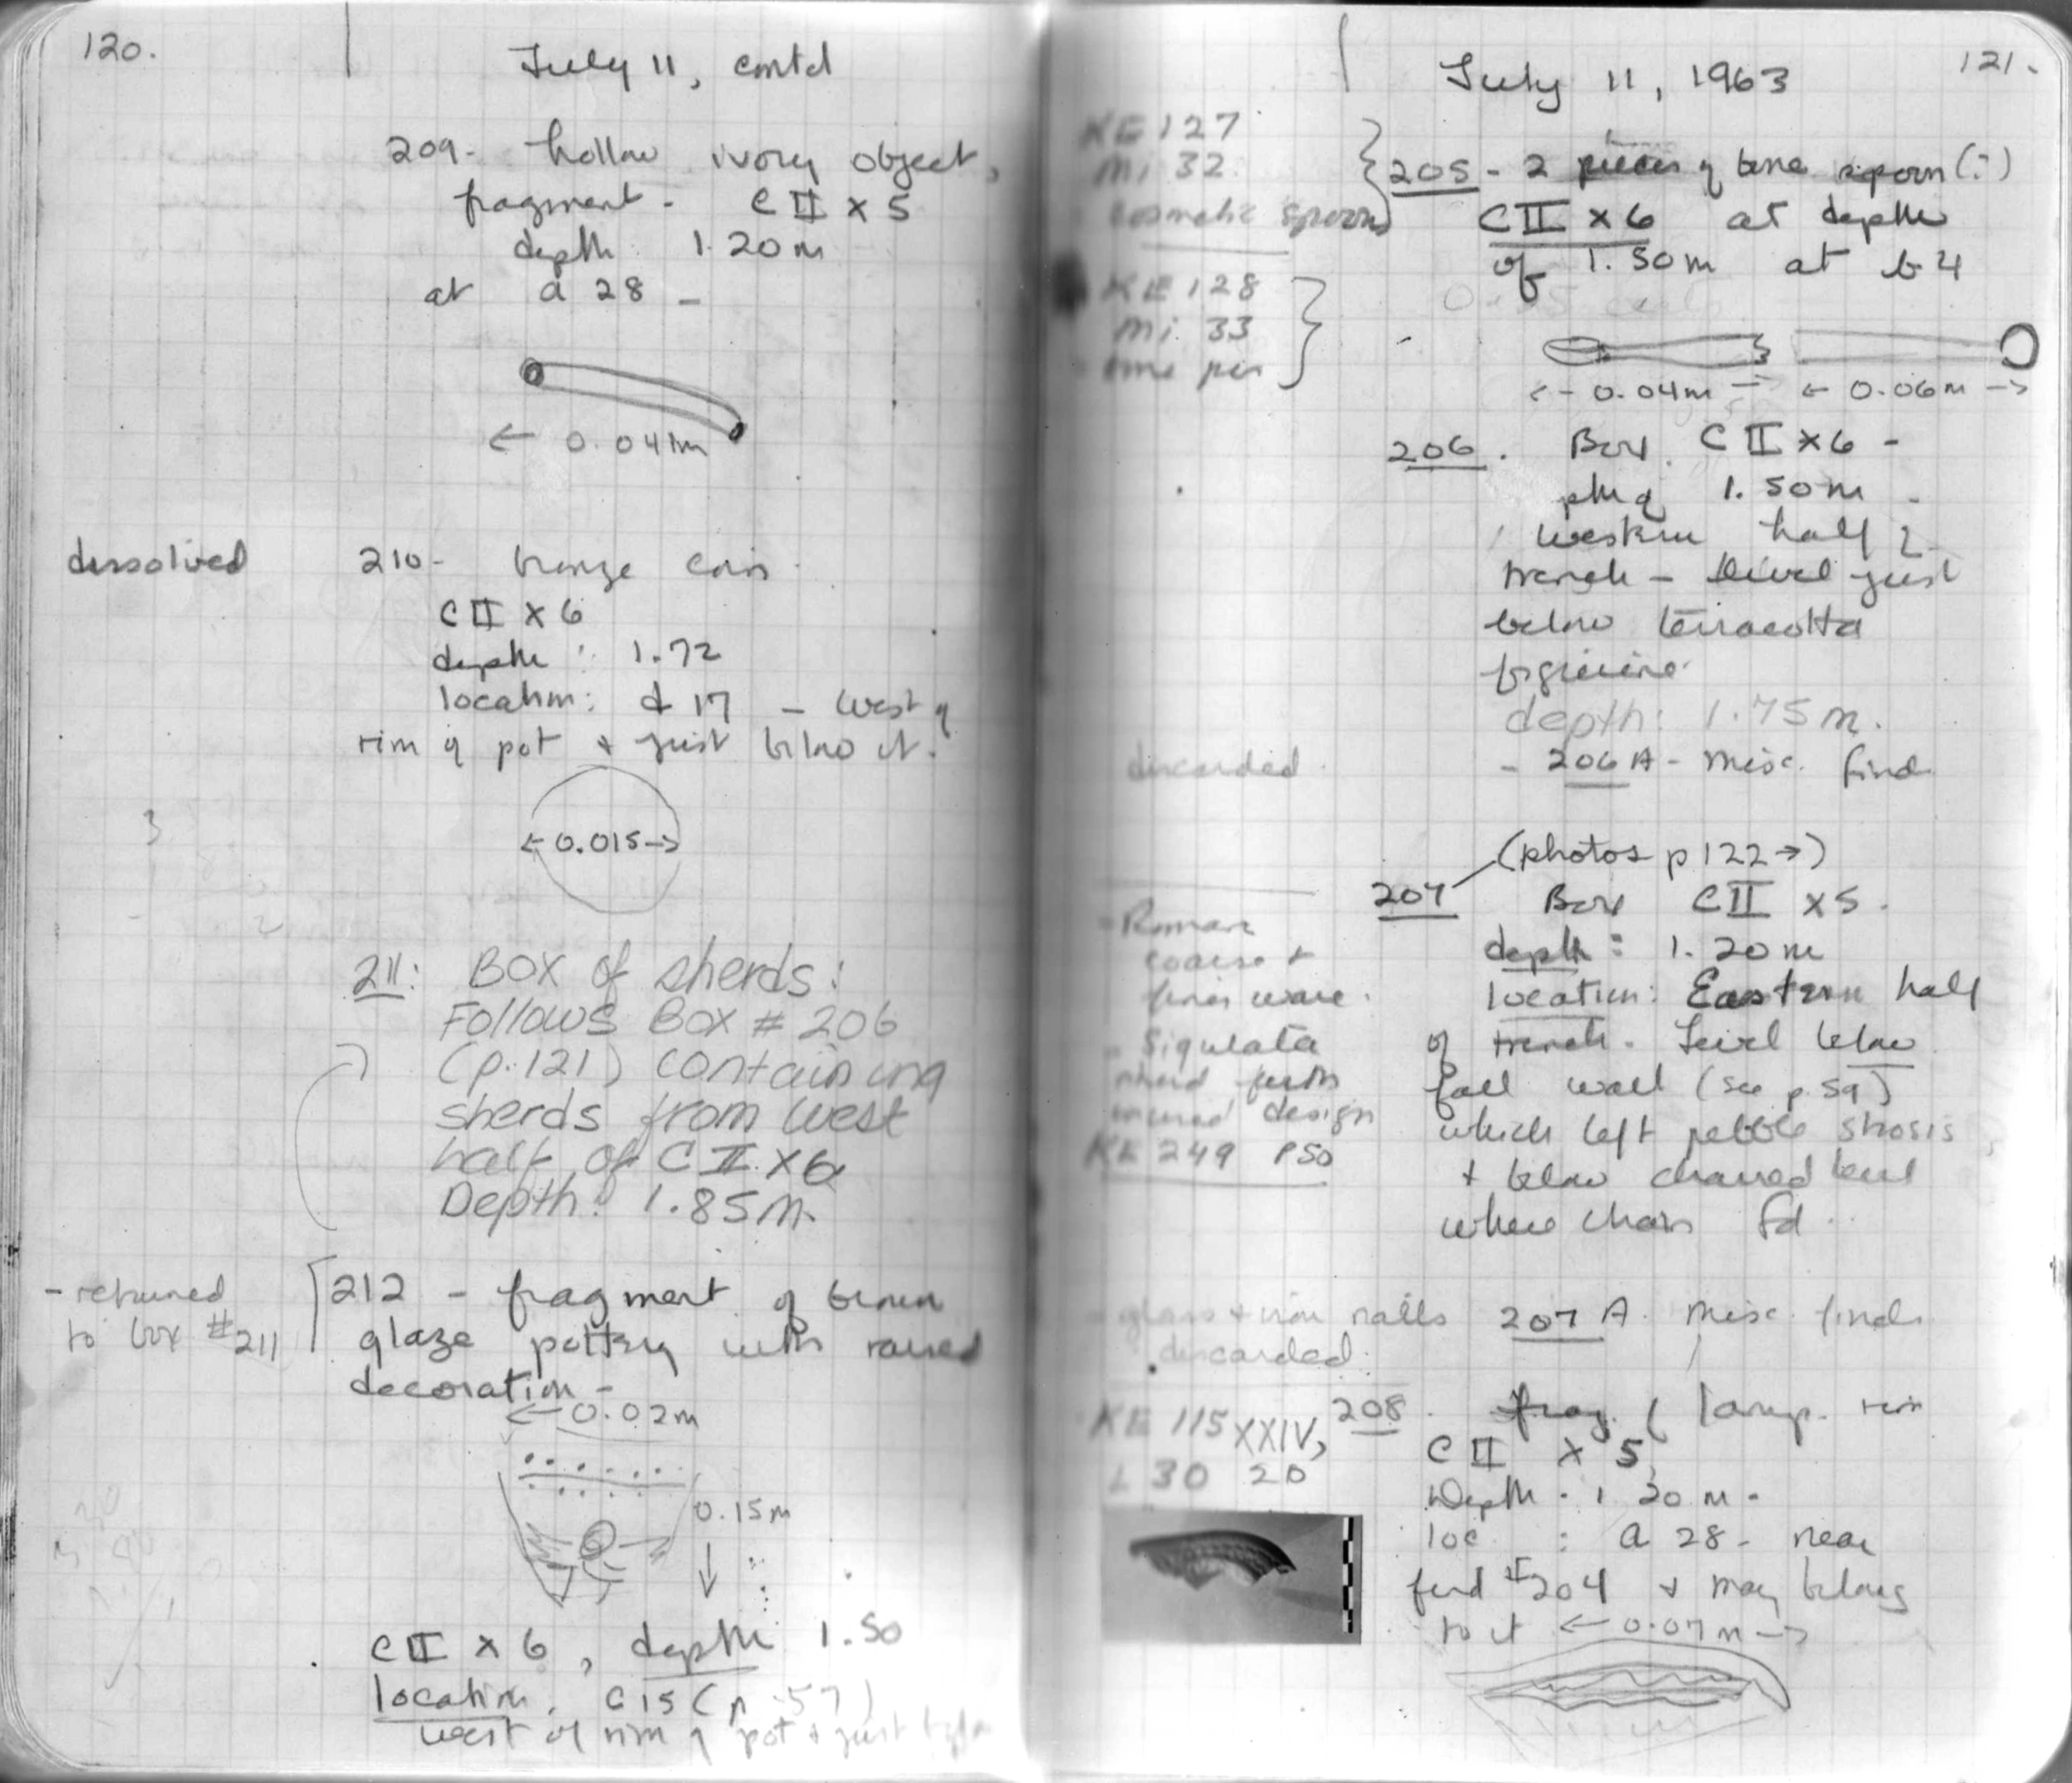 120.
July 11, contd
209- hollow ivory object,
fragment - C II x 5
depth 1.20 m
at a 28 -
← 0.041m
dissolved
210- bronze coin
C II x 6
depth : 1.72
location: d 17 - West of
rim of pot + just below it.
←0.015→
211: Box of sherds:
Follows Box # 206
(p.121) containing
sherds from West
half of C II x 6
Depth: 1.85m.
- returned
to box #211
212 - fragment of brown
glaze pottery with raised
decoration -
←0.02m
0.15m
↓
C II x 6, depth 1.50
location. C15 (p. 57)
west of rim of pot + just below
121.
July 11, 1963
KE 127
Mi 32
cosmetic spoon
205 - 2 pieces of bone spoon (?)
C II x 6 at depth
of 1.50m at b 4
KE 128
Mi. 33
bone pin
←- 0.04m -→ ← 0.06m →
206. Box. C II x 6 -
1.50m -
Western half
trench - level just
below terracotta
figurine.
depth: 1.75m.
discarded
- 206 A - Misc. find
(photos p 122→)
207 Box C II x5.
depth: 1.20m
location: Eastern half
of trench. Level below
fall wall (see p. 59)
which left pebble strosis
+ below charred level
where chain fd.
- Roman
coarse +
finer ware.
- Sigulata
sherd with
incised design
KE 249 P50
- glass + iron nails
discarded
207 A. Misc. finds
KE 115 XXIV,
L 30 20
208. frag. of lamp. rim
C II x 5,
Depth. 1.20 m.
loc : a 28 - near
find #204 + may belong
to it ←0.07m→